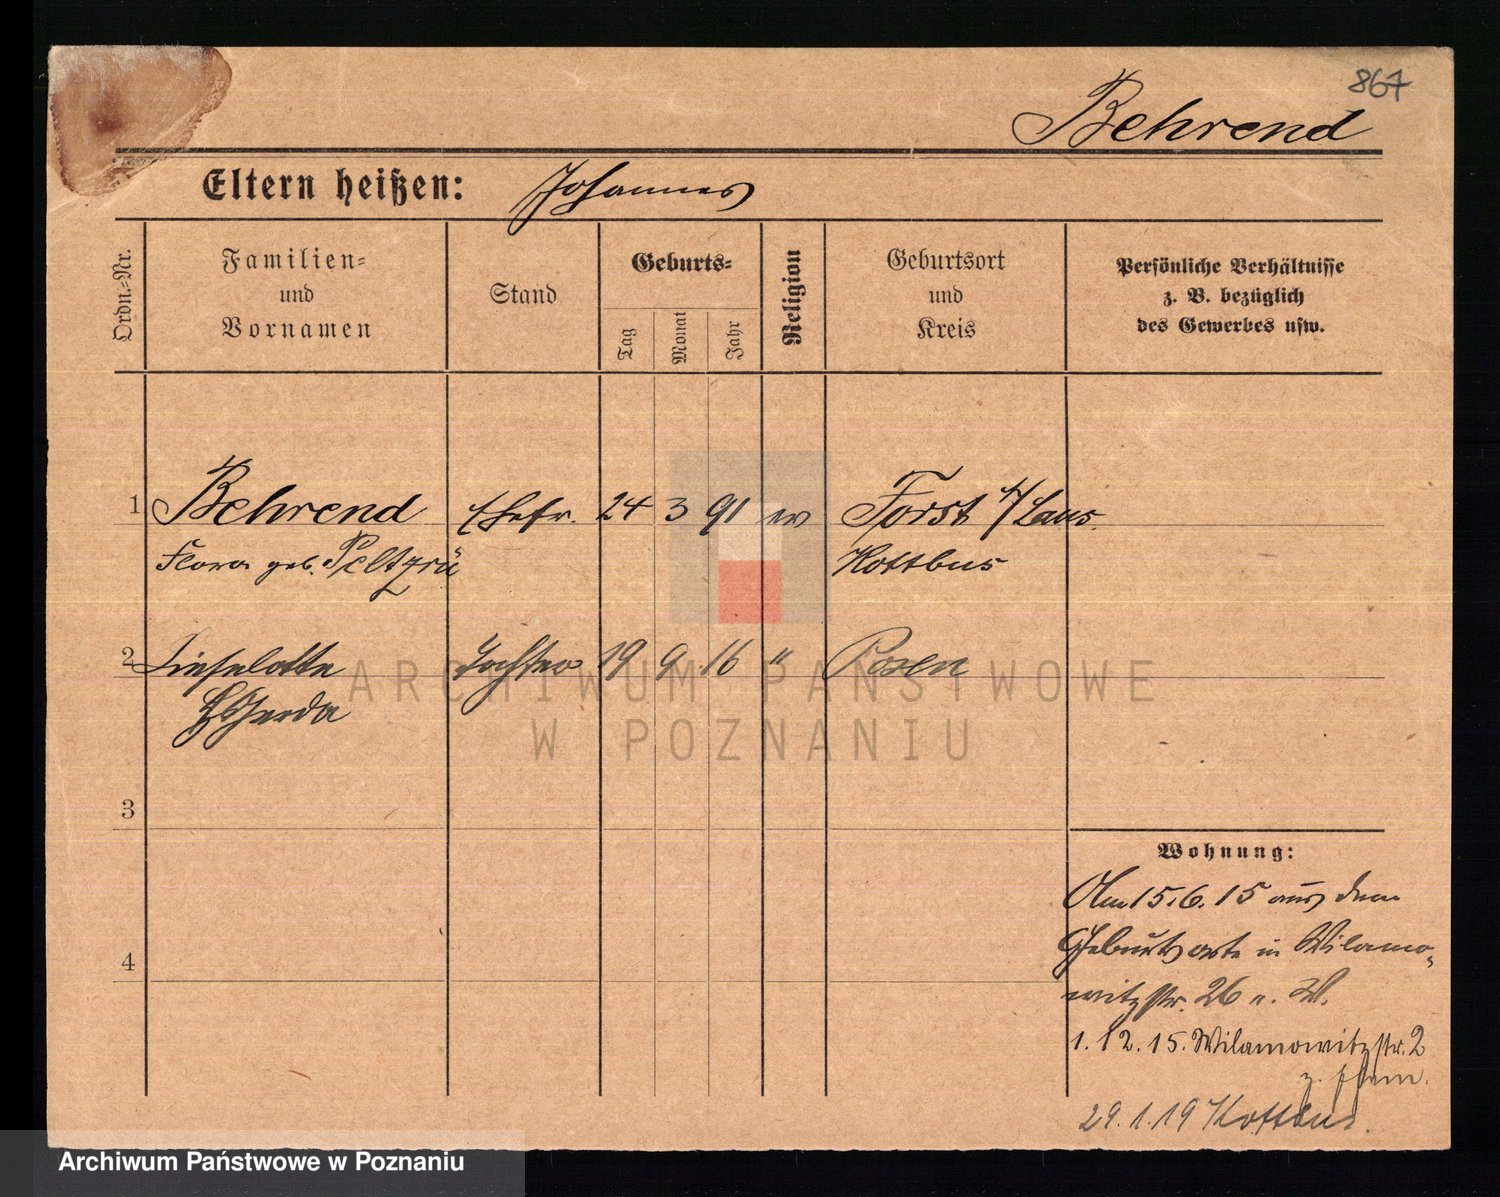 867
Behrend
Eltern heißen: Johannes
Ordn.-Nr.
Familien-
und
Vornamen
Stand
Geburts-
Tag
Monat
Jahr
Religion
Geburtsort
und
Kreis
Persönliche Verhältnisse
z. B. bezüglich
des Gewerbes usw.
1 Behrend Ehefr. 24 3 91 ev Forst i/Laus.
Flora geb. Peltzrü Kottbus
2 Lieselotte Tochter 19 9 16 " Posen
Gerda
3
Wohnung:
Am 15.6.15 aus dem
Geburtsorte in Wilamo-
4
witzstr. 26 u. W.
1.12.15. Wilamowitzstr. 2
z.
29.1.19 Kottbus.
ARCHIWUM PAŃSTWOWE
W POZNANIU
Archiwum Państwowe w Poznaniu